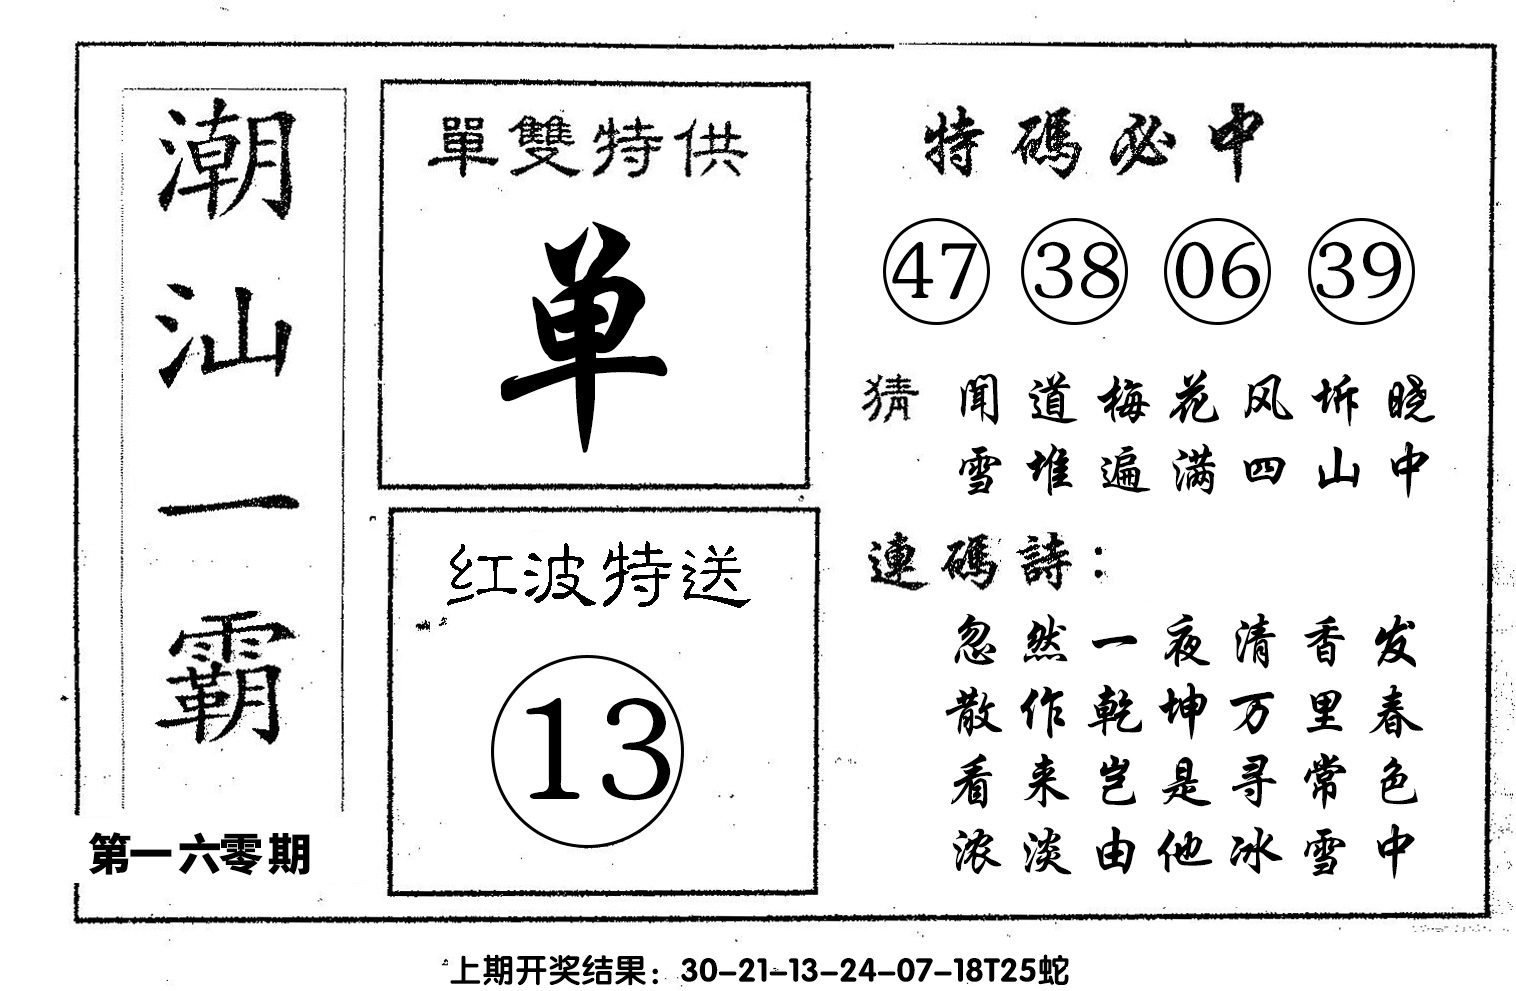 潮汕一霸
第一六零期
單雙特供
单
红波特送
13
特碼必中
47 38 06 39
猜 闻道梅花风坼晓
雪堆遍满四山中
連碼詩：
忽然一夜清香发
散作乾坤万里春
看来岂是寻常色
浓淡由他冰雪中
上期开奖结果：30-21-13-24-07-18T25蛇